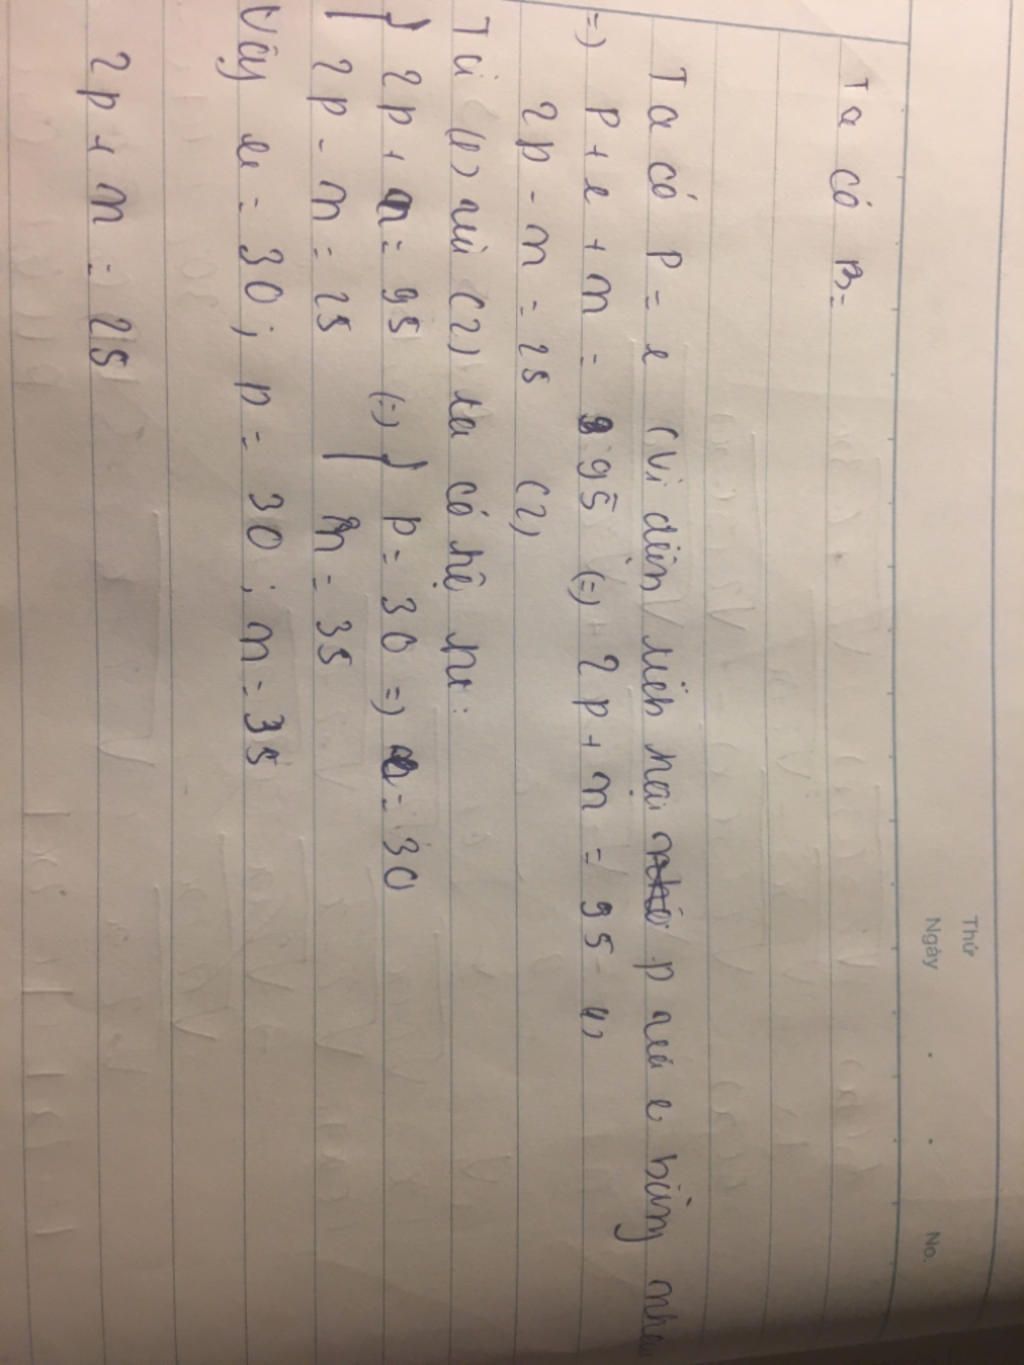 Thứ
Ngày . . No.
Ta có B =
Ta có p = e (vì điện tích hại p và e bằng nhau
=) p + e + n = 95 (=) 2p + n = 95 (1)
2p - n = 25 (2)
Từ (1) và (2) ta có hệ pt:
{ 2p + n = 95 (=) { p = 30 =) e = 30
{ 2p - n = 25 { n = 35
Vậy e = 30; p = 30; n = 35
2p + n = 25